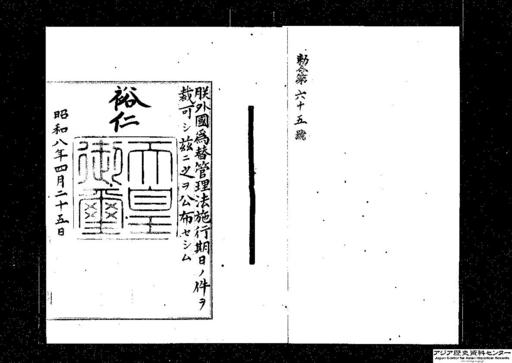 勅令第六十五號
朕外國爲替管理法施行期日ノ件ヲ
裁可シ茲ニ之ヲ公布セシム
裕仁
天皇
御璽
昭和八年四月二十五日
アジア歴史資料センター
Japan Center for Asian Historical Records